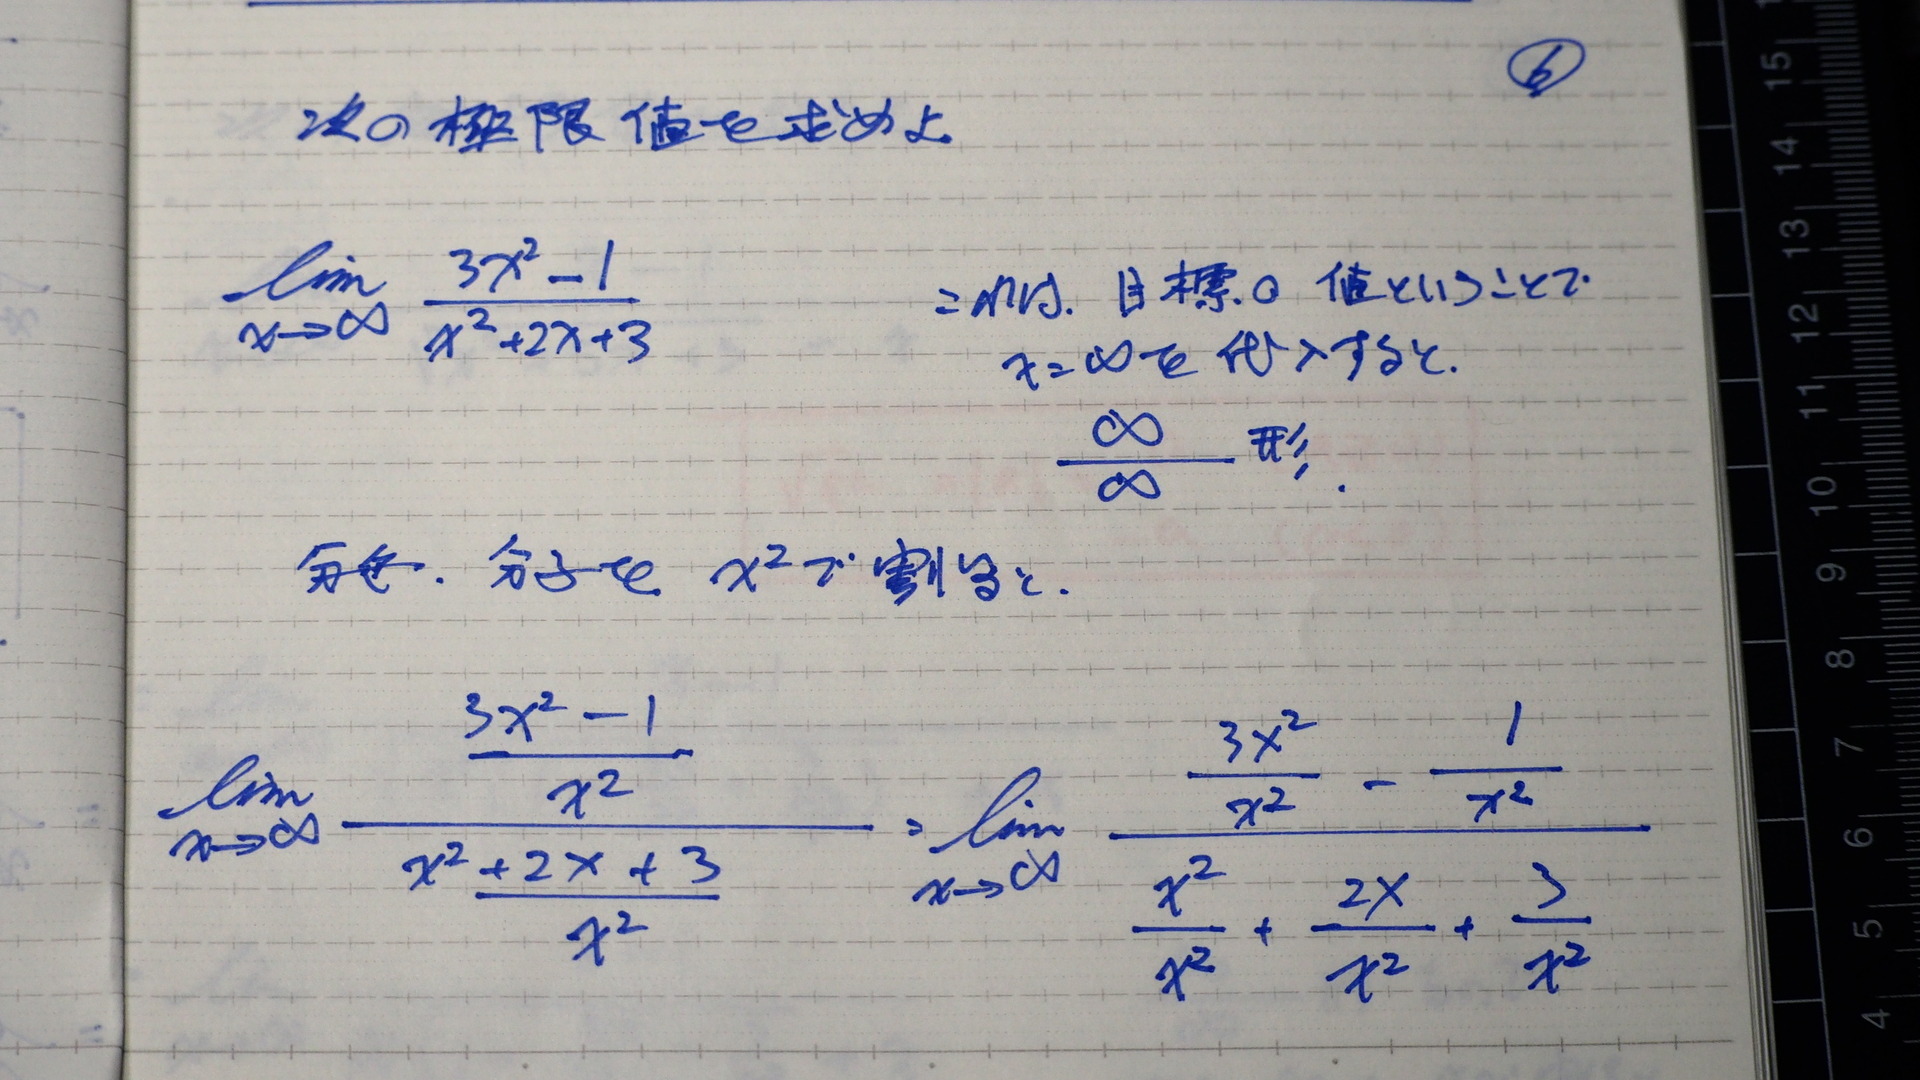 ⑥
次の極限値を求めよ
lim x→∞ (3x²-1)/(x²+2x+3)
これは、目標の値ということで
x=∞を代入すると、
∞/∞ 形、
分母、分子を x²で割ると、
lim x→∞ ((3x²-1)/x²)/((x²+2x+3)/x²) = lim x→∞ (3x²/x² - 1/x²)/(x²/x² + 2x/x² + 3/x²)
15
14
13
12
11
10
9
8
7
6
5
4